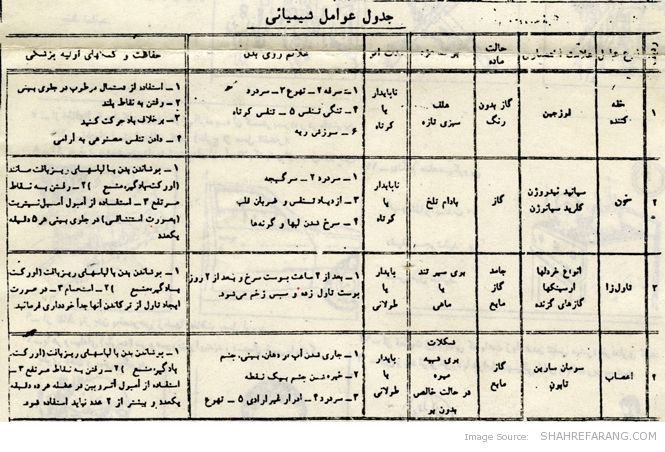 جدول عوامل شیمیائی
ردیف نوع عامل علامت اختصاری حالت ماده بو علائم روی بدن حفاظت و کمکهای اولیه پزشکی
۱
خفه کننده
فوزجین
گاز بدون رنگ
علف سبزی تازه
ناپایدار یا کوتاه
۱ــ سرفه ۲ــ تهوع ۳ــ سردرد
۴ــ تنگی تنفس ۵ــ تنفس کوتاه
۶ــ سوزش ریه
۱ــ استفاده از دستمال مرطوب در جلوی بینی
۲ــ رفتن به نقاط بلند
۳ــ برخلاف باد حرکت کنید
۴ــ دادن تنفس مصنوعی به آرامی
۲
خون
سیانید هیدروژن
کلرید سیانوژن
گاز
بادام تلخ
ناپایدار یا کوتاه
۱ــ سردرد ۲ــ سرگیجه
۳ــ ازدیاد تنفس و ضربان قلب
۴ــ سرخ شدن لبها و گونه‌ها
۱ــ پوشاندن بدن با لباسهای زیر بافت مانند
(اورکت بادگیر مشمع) ۲ــ رفتن به نقاط
مرتفع ۳ــ استفاده از آمپول آمیل نیتریت
(بصورت استنشاقی) در جلوی بینی هر ۵ دقیقه
یکعدد
۳
تاول‌زا
انواع خردلها
ارسینکها
گازهای گزنده
جامد گاز مایع
بوی سیر تند یا ماهی
پایدار یا طولانی
۱ــ بعد از ۲ ساعت پوست سرخ و بعد از ۲ روز
پوست تاول زده و سپس زخم می‌شود.
۱ــ پوشاندن بدن با لباسهای زیر بافت (اورکت،
بادگیر مشمع) ۲ــ استحمام ۳ــ در صورت
ایجاد تاول از ترکاندن آنها جداً خودداری فرمائید.
۴
اعصاب
سومان سارین
تابون
گاز مایع
شکلات
بوی شبیه میوه
در حالت خالص
بدون بو
پایدار یا طولانی
۱ــ جاری شدن آب در دهان، بینی، چشم
۲ــ خیره شدن چشم بیک نقطه
۳ــ سردرد ۴ــ ادرار غیرارادی ۵ــ تهوع
۱ــ پوشاندن بدن با لباسهای زیر بافت (اورکت،
بادگیر مشمع) ۲ــ رفتن به نقاط مرتفع ۳ــ
استفاده از آمپول آتروپین در عضله هر ده دقیقه
یکعدد و بیشتر از ۲ عدد نباید استفاده شود.
Image Source: SHAHREFARANG.COM